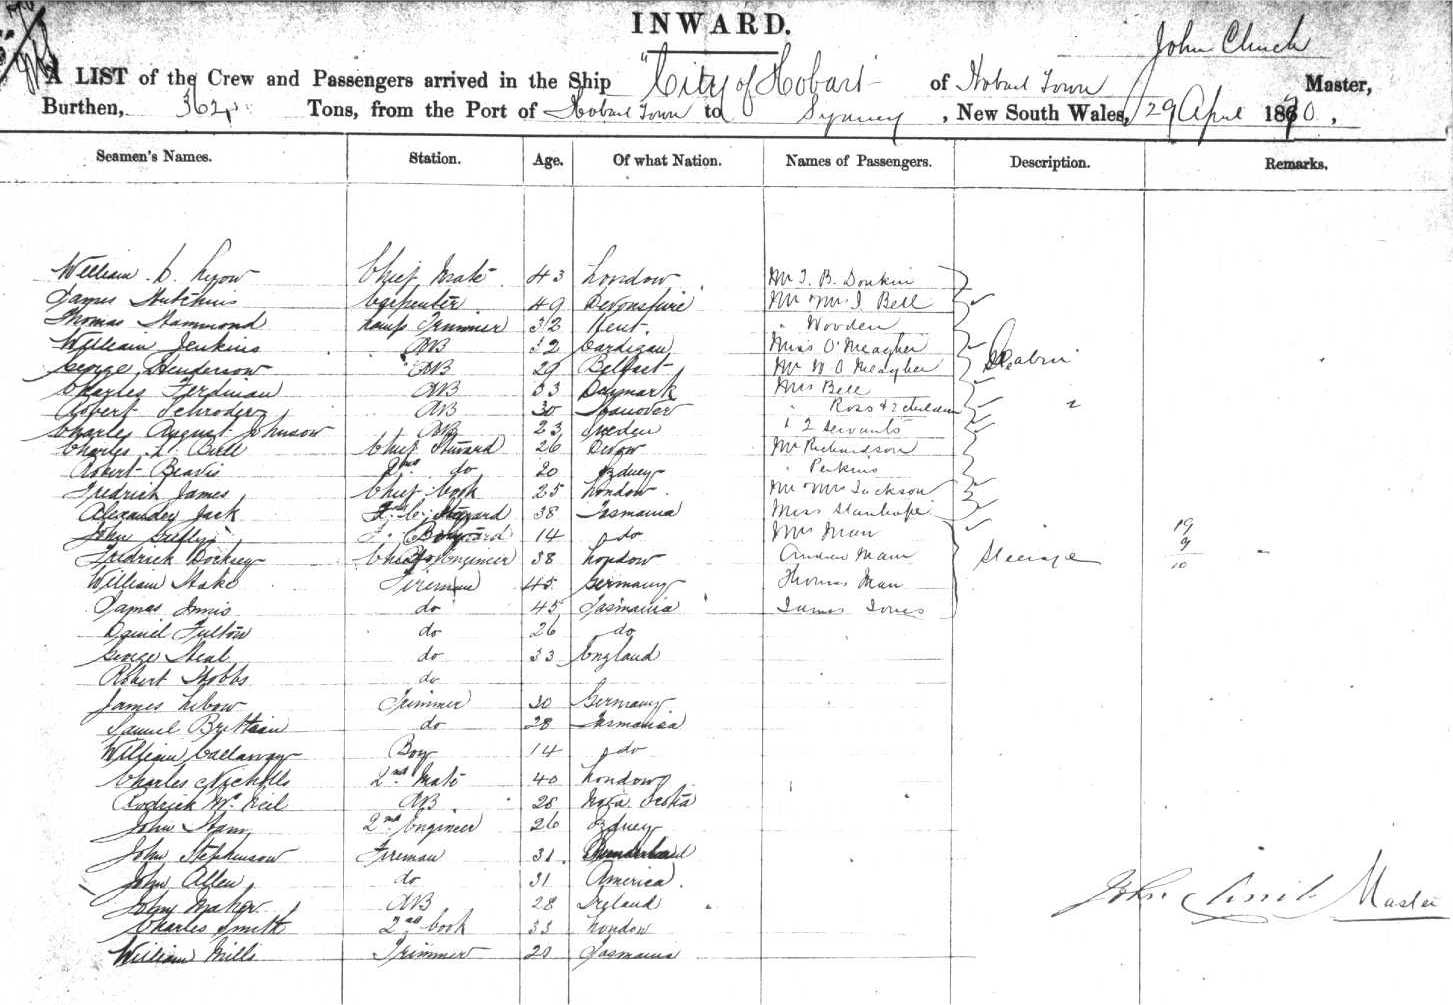 INWARD.
John Clinch
A LIST of the Crew and Passengers arrived in the Ship "City of Hobart" of Hobart Town Master,
Burthen, 362 Tons, from the Port of Hobart Town to Sydney, New South Wales, 29 April 1870,
Seamen's Names. Station. Age. Of what Nation. Names of Passengers. Description. Remarks.
William Chief Mate 43 London Mr T. B. Donkin
James Hutchins Carpenter 49 Devonshire Mr & Mrs J Bell
Thomas Hammond Lamp Trimmer 32 Kent. " Wooden
William Jenkins AB 32 Cardigan Miss O'Meagher
George Henderson AB 29 Belfast Mr W O Meagher Cabin
Charles Ferdinan AB 33 Denmark Mrs Bell
Robert Schroder AB 30 Hanover " Ross & 2 children
Charles August Johnson AB 23 Sweden " 2 Servants
Charles Bell Chief Steward 26 Devon Mr Richardson
Robert Beavis 2nd do 20 Sydney " Perkins
Fredrick James Chief Cook 25 London Mr & Mrs Jackson
Alexander Jack 38 Tasmania Miss Stanhope
John 14 do Mrs Man 19
Fredrick Engineer 38 London Andrew Man Steerage 9
William Hake Fireman 45 Germany Thomas Man 10
James Innis do 45 Tasmania James Jones
Daniel Fulton do 26 do
George Neal do 33 England
Robert Hobbs do
James Trimmer 30 Germany
Samuel Brittain do 28 Tasmania
William Callaway Boy 14 do
Charles Nicholls 2nd Mate 40 London
Rodrick McNeil AB 28 Nova Scotia
John Ham 2nd Engineer 26 Sydney
John Stephenson Fireman 31
John Allen do 31 America
John Maher AB 28 Ireland John Clinch Master
Charles Smith 2nd Cook 33 London
William Mills Trimmer 20 Tasmania